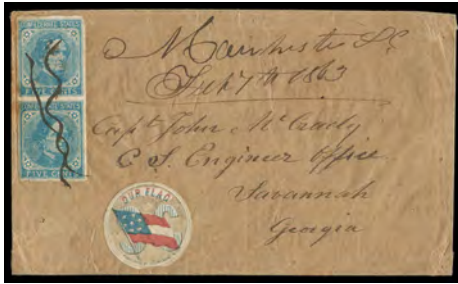 FIVE CENTS
FIVE CENTS
Manchester S C
Feb 7th 1863
Capt John McCrady
C S. Engineer Office
Savannah
Georgia
OUR FLAG